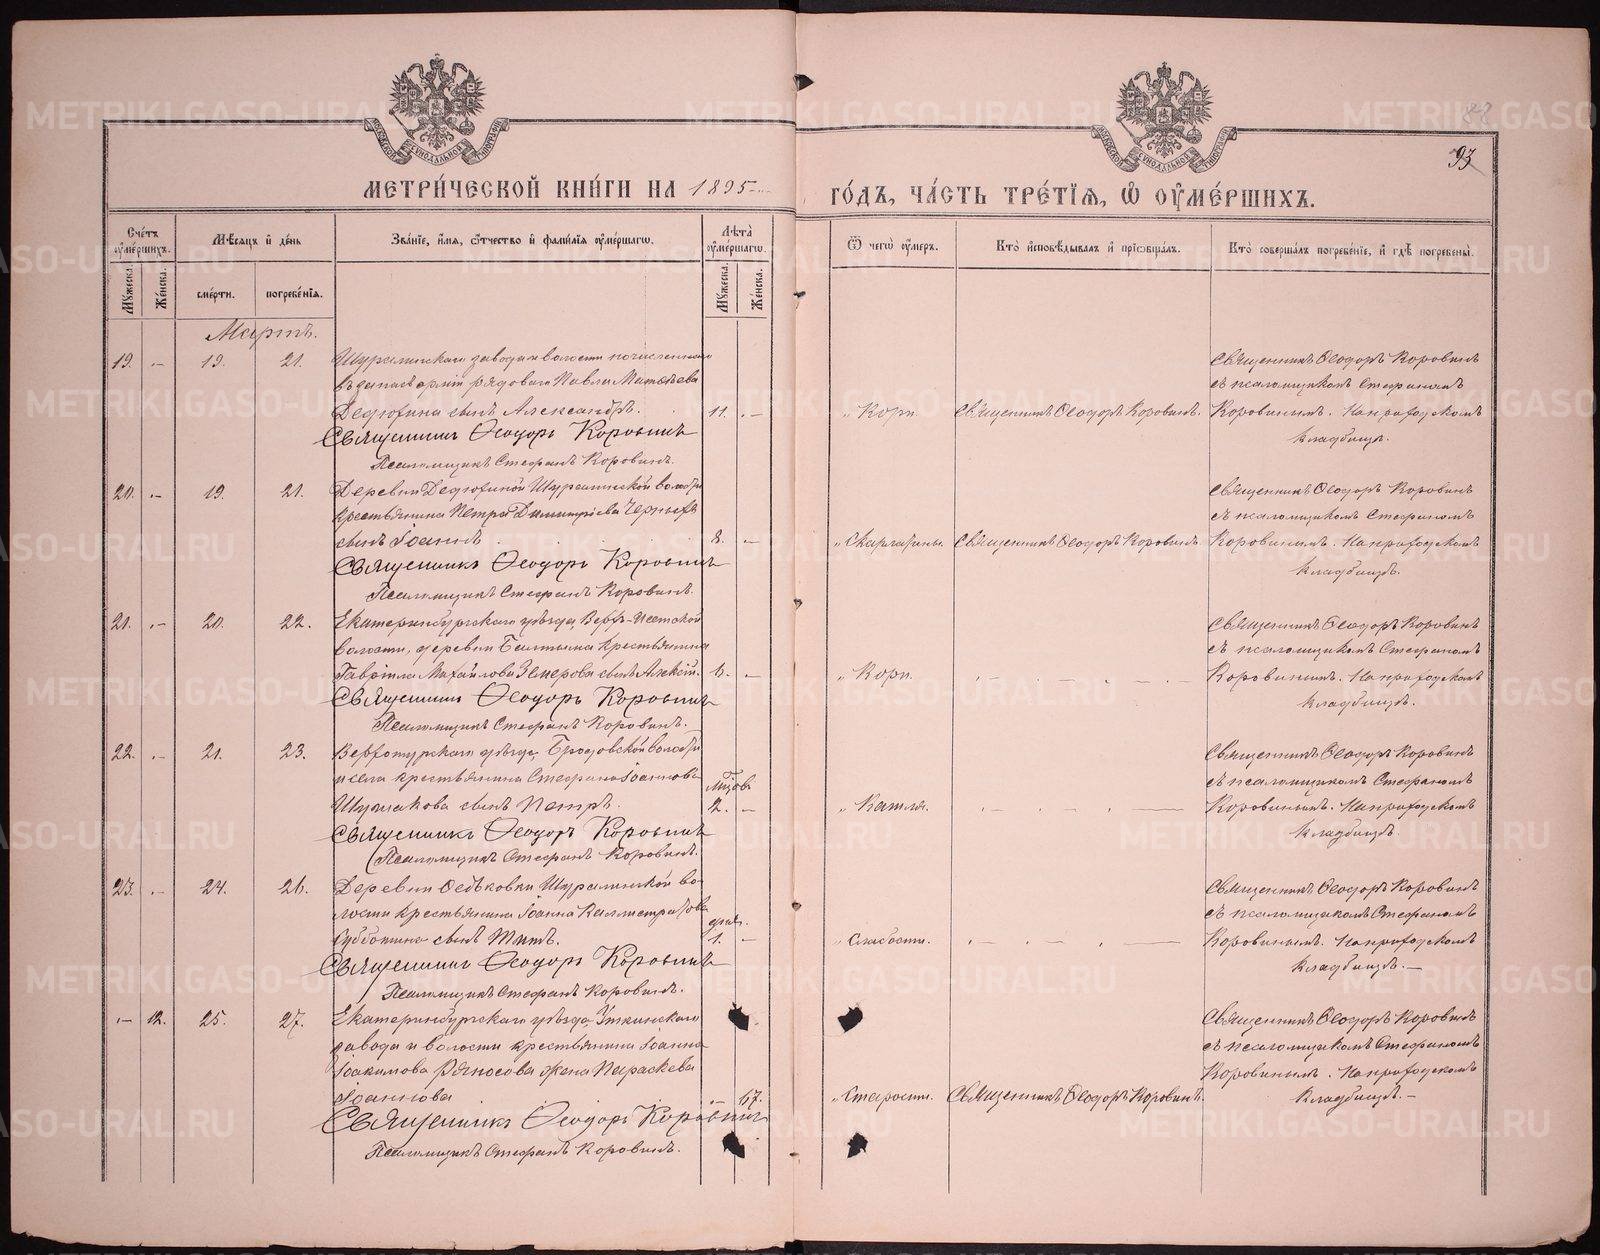 82
93
МЕТРИ́ЧЕСКОЙ КНИ́ГИ НА 1895 ГО́ДЪ, ЧА́СТЬ ТРЕ́ТІѦ, Ѡ ОУ҆МЕ́РШИХЪ.
Сче́тъ оу҆ме́ршихъ.
Мꙋжеска.
Же́нска.
Мѣ́сѧцъ и҆ де́нь
сме́рти.
погребе́нїѧ.
Зва́нїе, и҆́мѧ, ѻ҆́тчество и҆ фами́лїѧ оу҆ме́ршагѡ.
Лѣ́та оу҆ме́ршагѡ.
Мꙋжеска.
Же́нска.
Ѿ чегѡ̀ оу҆́меръ.
Кто̀ и҆сповѣ́дывалъ и҆ прїѡбща́лъ.
Кто̀ соверша́лъ погребе́нїе, и҆ гдѣ̀ погребены̀.
Мартъ.
19. - 19. 21.
Шуралинскаго завода и волости почисленнаго
въ запасъ арміи рядоваго Павла Матѳеева
Дедюхина сынъ Александръ. 11. -
Священникъ Ѳеодоръ Коровинъ
Псаломщикъ Стефанъ Коровинъ.
„ Кори. Священникъ Ѳеодоръ Коровинъ.
Священникъ Ѳеодоръ Коровинъ
съ псаломщикомъ Стефаномъ
Коровинымъ. На приходскомъ
кладбищѣ.
20. - 19. 21.
Деревни Дедюхиной Шуралинской волости
крестьянина Петра Димитріева Черныхъ
сынъ Іоаннъ 8. -
Священникъ Ѳеодоръ Коровинъ
Псаломщикъ Стефанъ Коровинъ.
„ Скарлатины. Священникъ Ѳеодоръ Коровинъ.
Священникъ Ѳеодоръ Коровинъ
съ псаломщикомъ Стефаномъ
Коровинымъ. На приходскомъ
кладбищѣ.
21. - 20. 22.
Екатеринбургскаго уѣзда, Верхъ-Исетской
волости, деревни крестьянина
Гавріила Михайлова сынъ Алексій. 6. -
Священникъ Ѳеодоръ Коровинъ
Псаломщикъ Стефанъ Коровинъ.
„ Кори. - - -
Священникъ Ѳеодоръ Коровинъ
съ псаломщикомъ Стефаномъ
Коровинымъ. На приходскомъ
кладбищѣ.
22. - 21. 23.
Верхотурскаго уѣзда, Бродовской волости
и села крестьянина Стефана Іоаннова
сынъ Петръ. 2. -
Священникъ Ѳеодоръ Коровинъ
Псаломщикъ Стефанъ Коровинъ.
„ Кашля. - - -
Священникъ Ѳеодоръ Коровинъ
съ псаломщикомъ Стефаномъ
Коровинымъ. На приходскомъ
кладбищѣ.
23. - 24. 26.
Деревни Ѳедьковки Шуралинской во-
лости крестьянина Іоанна Каллистратова
Субботина сынъ Титъ. 1. -
Священникъ Ѳеодоръ Коровинъ
Псаломщикъ Стефанъ Коровинъ.
„ Слабости. - - -
Священникъ Ѳеодоръ Коровинъ
съ псаломщикомъ Стефаномъ
Коровинымъ. На приходскомъ
кладбищѣ. -
- 12. 25. 27.
Екатеринбургскаго уѣзда, Уткинскаго
завода и волости крестьянина Іоанна
Іоакимова жена Параскева
Іоаннова - 67.
Священникъ Ѳеодоръ Коровинъ
Псаломщикъ Стефанъ Коровинъ.
„ Старости. Священникъ Ѳеодоръ Коровинъ.
Священникъ Ѳеодоръ Коровинъ
съ псаломщикомъ Стефаномъ
Коровинымъ. На приходскомъ
кладбищѣ. -
METRIKI.GASO-URAL.RU